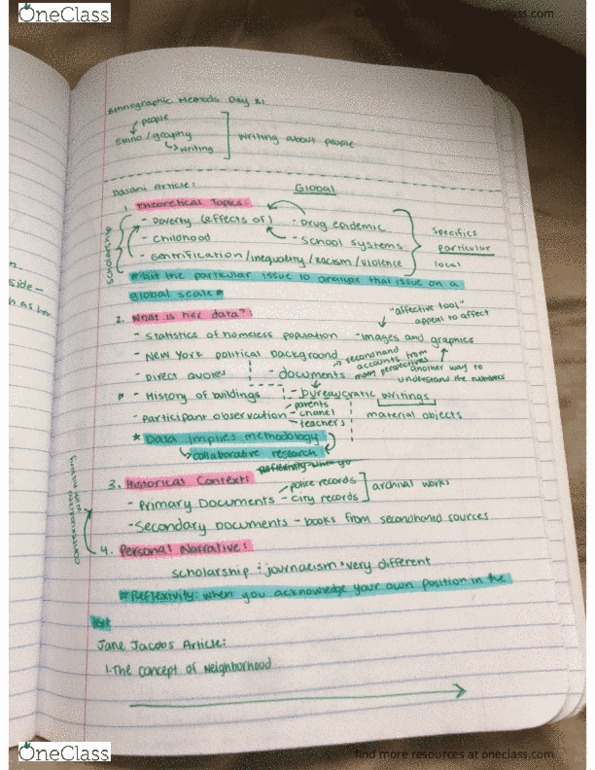 OneClass
find more resources at oneclass.com
Ethnographic Methods Day 2:
people
Ethno/graphy
writing
Writing about people
Dasani Article:
Global
1. Theoretical Topics:
- Poverty (effects of)
- Drug epidemic
- Childhood
- School systems
- Gentrification/inequality/racism/violence
scholarship
specifics
particular
local
the particular issue to analyze that issue on a
global scale*
2. What is her data?
"affective tool"
appeal to affect
- Statistics of homeless population
- images and graphics
- New York political background
secondhand
accounts from
many perspectives
another way to
understand the numbers
- Direct quotes
- documents
- History of buildings
- bureaucratic writings
- Participant observation
parents
chanel
teachers
material objects
* Data implies methodology
collaborative research
Reflexivity-when you
3. Historical Context:
- Primary Documents
- police records
- city records
archival works
- Secondary Documents - books from secondhand sources
4. Personal Narrative:
scholarship : journalism = very different
*Reflexivity: when you acknowledge your own position in the
Jane Jacobs Article:
1. The concept of Neighborhood
n.
side-
h as her
OneClass
find more resources at oneclass.com